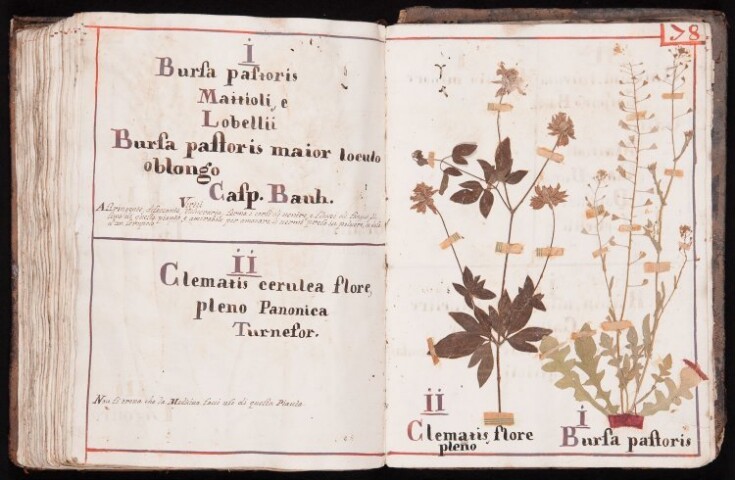 i
Bursa pastoris
Mattioli, e
Lobellii
Bursa pastoris maior loculo
oblongo
Casp. Bauh.
Virtù
Astringente,
ii
Clematis cerulea flore,
pleno Panonica
Turnefor.
Non si trova che la Medicina facci uso di questa Pianta
78
ii
Clematis, flore
pleno
i
Bursa pastoris